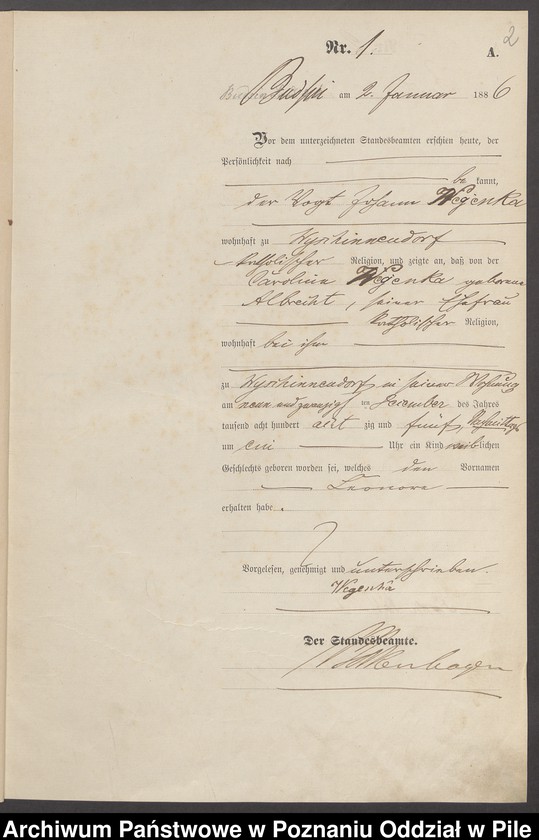 2
Nr. 1.
A.
Budsin am 2. Januar 1886
Vor dem unterzeichneten Standesbeamten erschien heute, der
Persönlichkeit nach
be kannt,
der Vogt Johann Wegenka
wohnhaft zu Wyschinnendorf
katholischer Religion, und zeigte an, daß von der
Caroline Wegenka geborene
Albrecht, seiner Ehefrau
katholischer Religion,
wohnhaft bei ihm
zu Wyschinnendorf in seiner Wohnung
am neun und zwanzig ten December des Jahres
tausend acht hundert acht zig und fünf, Nachmittags
um ein Uhr ein Kind weiblichen
Geschlechts geboren worden sei, welches den Vornamen
Leonore
erhalten habe.
Vorgelesen, genehmigt und unterschrieben.
Wegenka
Der Standesbeamte.
Archiwum Państwowe w Poznaniu Oddział w Pile